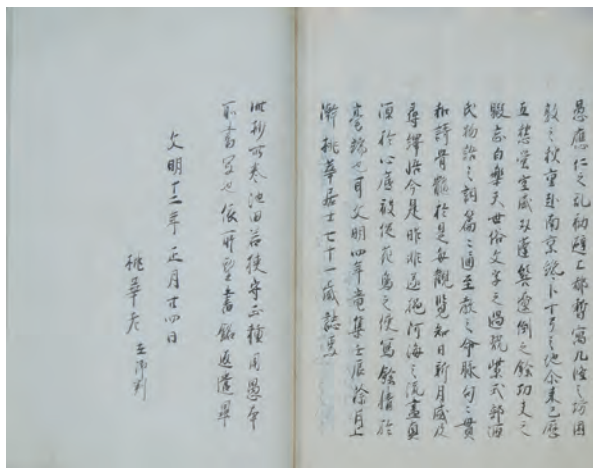 愚應仁之乱初避上都暫寓九條之坊同
之秋重赴南京卜十弓之地尒来已歴
五 之餘功夫之
暇忘白樂天世俗文字之過翫紫式部源
氏物語之詞篇〻通至教之命脉句〻貫
和語骨髄於是每觀覧知日新月盛及
尋繹悟今是昨非遂挹河海之流盡奥
源於心底從花鳥之使寫餘情於
毫端也耳文明四年竜集壬辰除月上
澣桃華居士七十一歳誌焉
此抄巻池田若狭守正種用愚本
所書写也依所望書銘返遣畢
文明十二年正月廿四日
桃華老 在御判